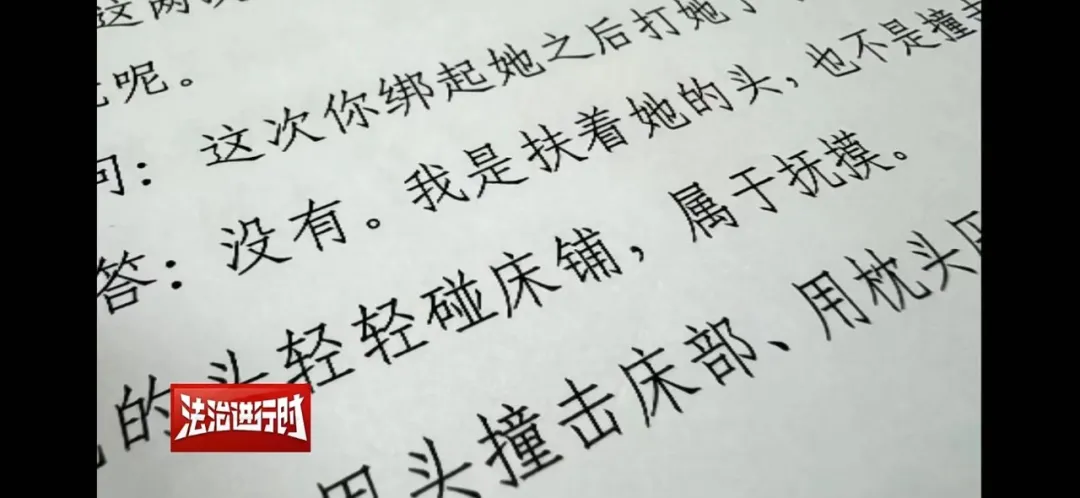 这两
呢。
问：这次你绑起她之后打她了
答：没有。我是扶着她的头，也不是撞击
的头轻轻碰床铺，属于抚摸。
用头撞击床部、用枕头
法治进行时